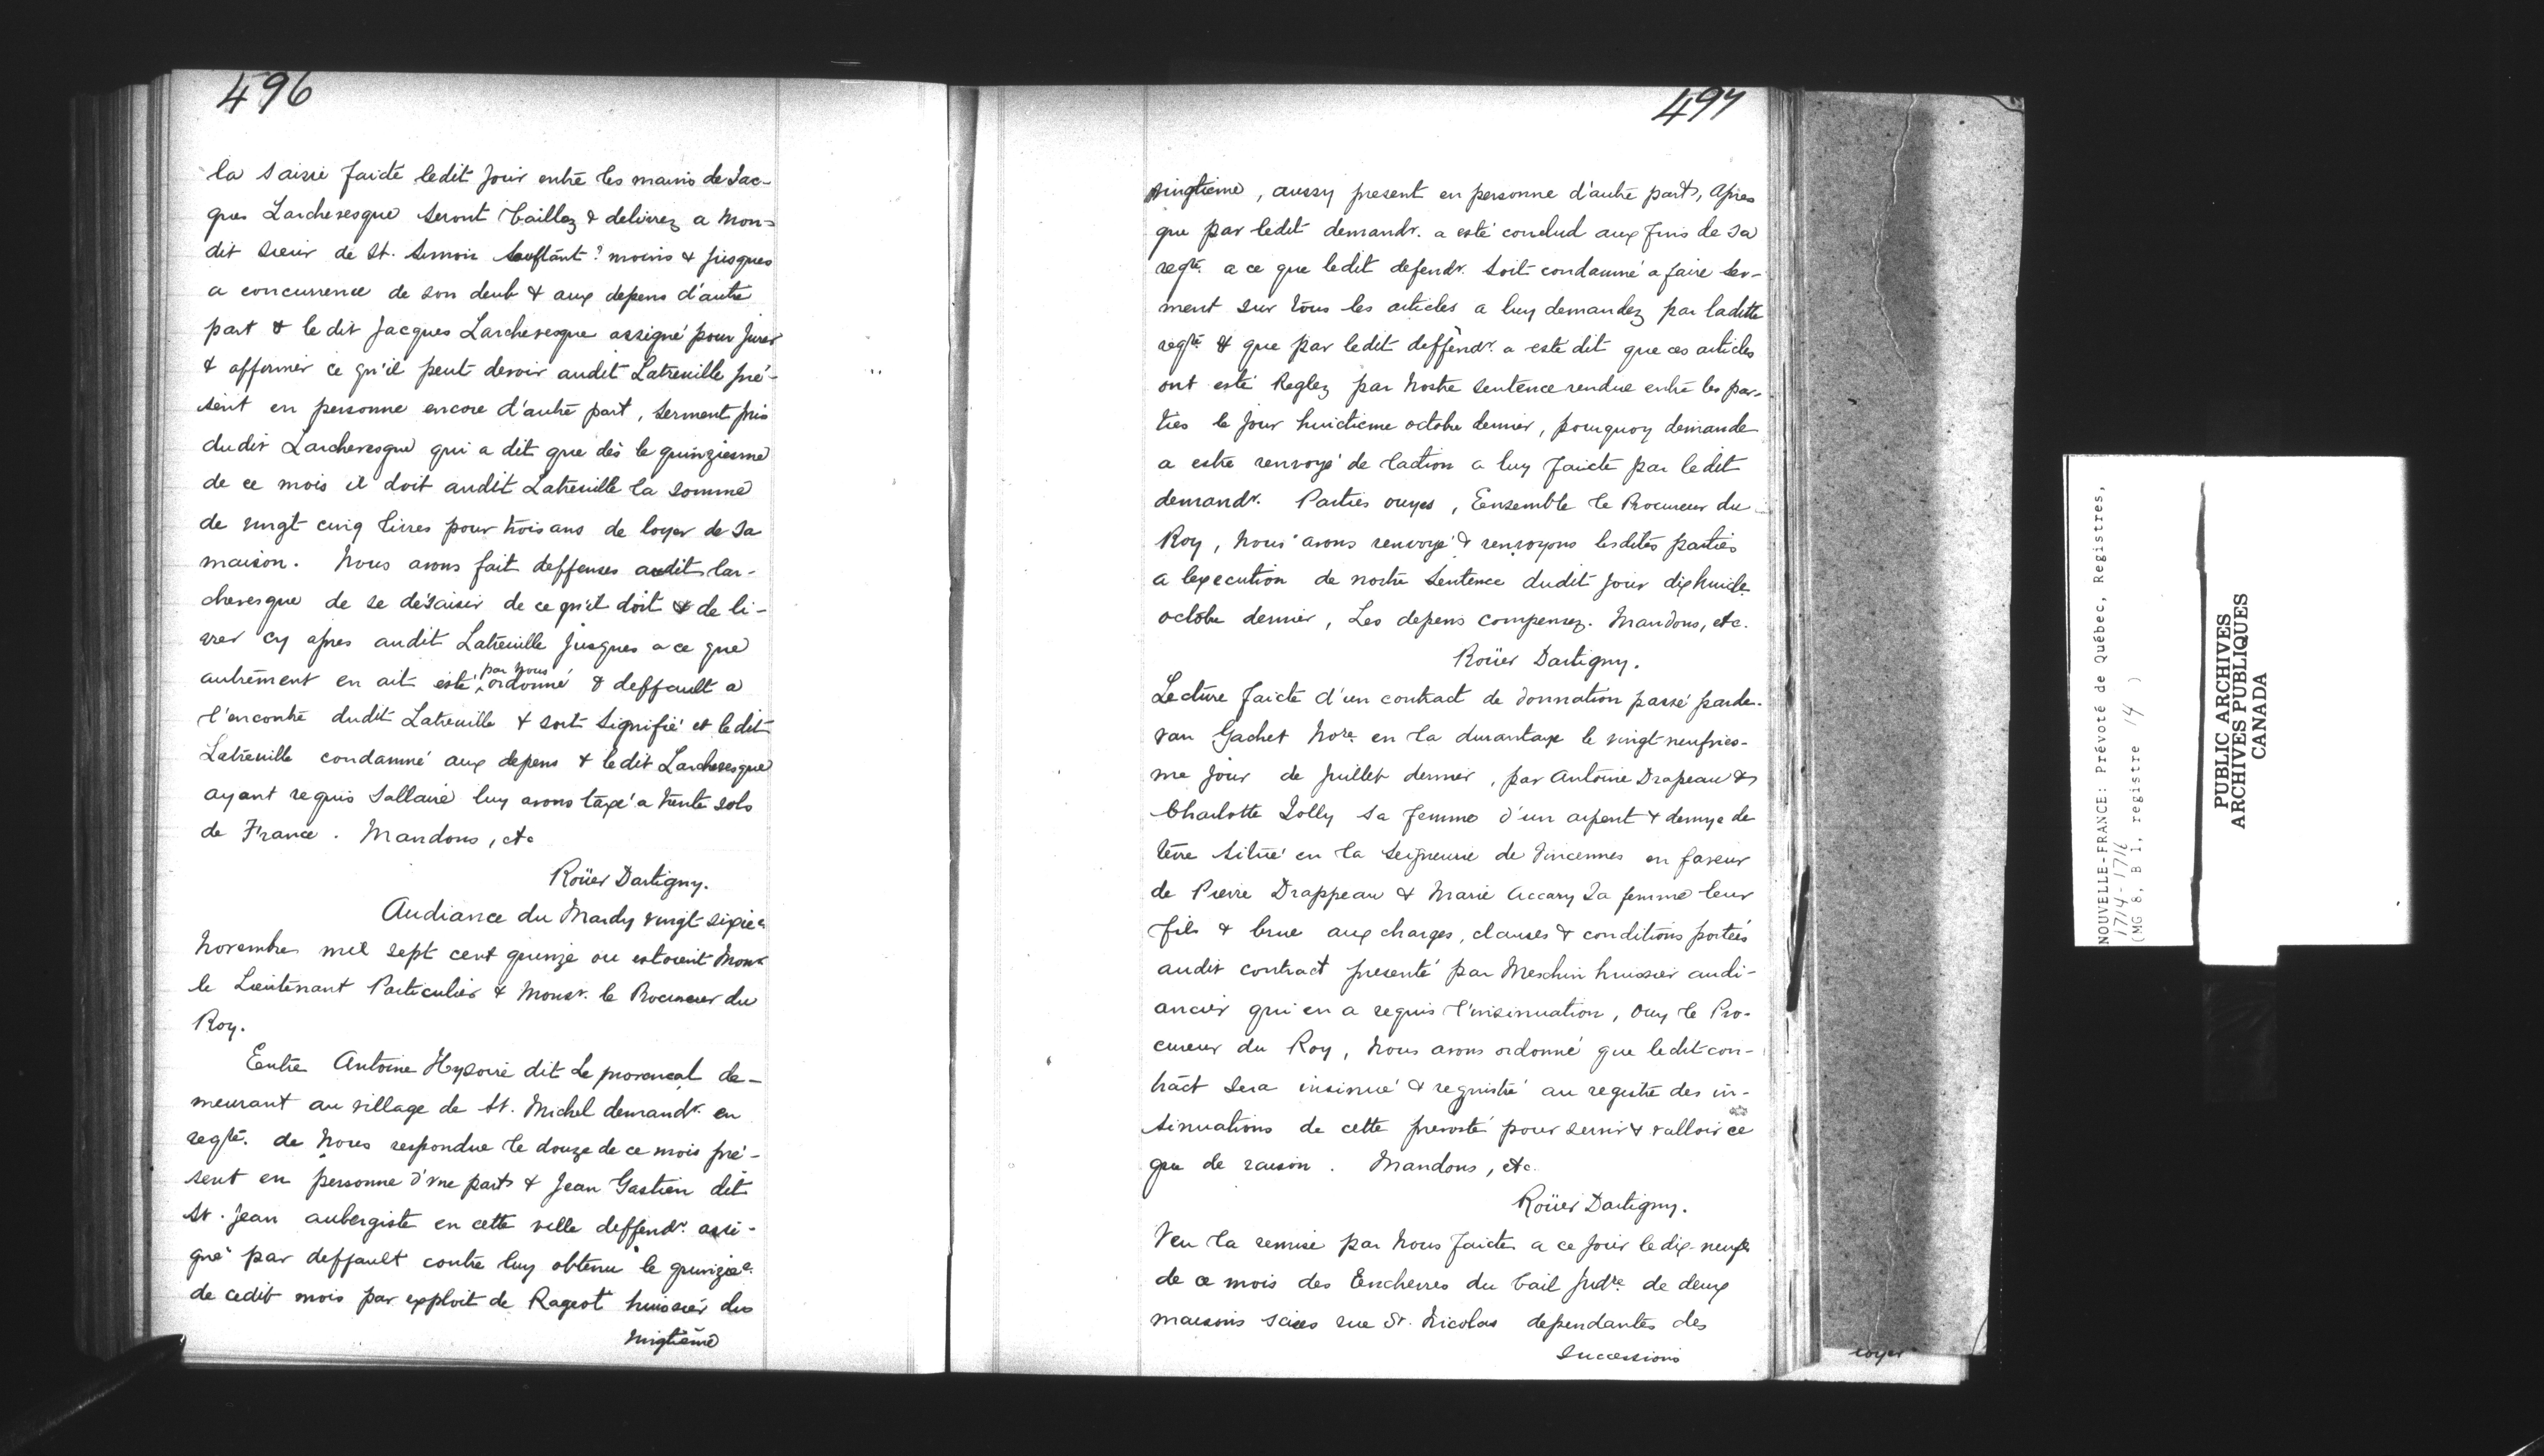 496
la saisie faicte ledit jour entre les mains de Jac-
ques Larchevesque seront baillez & delivrez a mon-
dit sieur de St. Simon souflant? moins & jusques
a concurrence de son deub & aux depens d'autre
part & ledit Jacques Larchevesque assigné pour jurer
& affirmer ce qu'il peut devoir audit Latreuille pré-
sent en personne encore d'autre part, serment pris
dudit Larchevesque qui a dit que dès le quinziesme
de ce mois il doit audit Latreuille la somme
de vingt cinq livres pour trois ans de loyer de sa
maison. Nous avons fait deffenses audit Lar-
chevesque de se désaisir de ce qu'il doit & de li-
vrer cy apres audit Latreuille jusques a ce que
autrement en ait esté par nous ordonné & deffault a
l'encontre dudit Latreuille & soit signifié et ledit
Latreuille condamné aux depens & ledit Larchevesque
ayant requis sallaire luy avons taxé a trente sols
de France. Mandons, etc
Roüer Dartigny.
Audiance du Mardy vingt sixie
Novembre mil sept cent quinze ou estoient Monsr
le Lieutenant Particulier & Monsr. le Procureur du
Roy.
Entre Antoine Hysoire dit Le provencal de-
meurant au village de St. Michel demandr. en
reqte. de nous respondue le douze de ce mois pré-
sent en personne d'vne part & Jean Gastien dit
St. Jean aubergiste en cette ville deffendr. assi-
gné par deffault contre luy obtenu le quinzie.
de cedit mois par exploit de Rageot huissier du
vingtième
497
vingtieme, aussy present en personne d'autre part, Apres
que par ledit demandr. a esté conclud aux fins de sa
reqte. a ce que ledit defendr. soit condamné a faire ser-
ment sur tous les articles a luy demandez par laditte
reqte. & que par ledit deffendr. a esté dit que ces articles
ont esté Reglez par Nostre sentence rendue entre les par-
ties le jour huictieme octobre dernier, pourquoy demande
a estre renvoyé de l'action a luy faicte par ledit
demandr. Parties ouyes, Ensemble le Procureur du
Roy, Nous avons renvoyé & renvoyons lesdites parties
a lexecution de nostre Sentence dudit jour dixhuict
octobre dernier, Les depens compensez. Mandons, etc.
Roüer Dartigny.
Lecture faicte d'un contract de donnation passé parde-
van Gachet Nore. en la durantaye le vingt neufvies-
me jour de juillet dernier, par Antoine Drapeau &
Charlotte Jolly sa femme d'un arpent & demye de
terre situé en la Seigneurie de Vincennes en faveur
de Pierre Drappeau & Marie Accary sa femme leur
fils & brue aux charges, clauses & conditions portées
audit contract presenté par Meschin huissier audi-
ancier qui en a requis l'insinuation, Ouy le Pro-
cureur du Roy, Nous avons ordonné que ledit con-
tract sera insinué & registré au registre des in-
sinuations de cette prevosté pour servir & valloir ce
que de raison. Mandons, etc.
Roüer Dartigny.
Veu la remise par Nous faicte a ce jour le dix-neufe
de ce mois des Encheres du bail judre. de deux
maisons scises rue St. Nicolas dependantes des
successions
loyer
NOUVELLE-FRANCE: Prévoté de Québec, Registres,
1714-1716
(MG 8, B 1, registre 14 )
PUBLIC ARCHIVES
ARCHIVES PUBLIQUES
CANADA